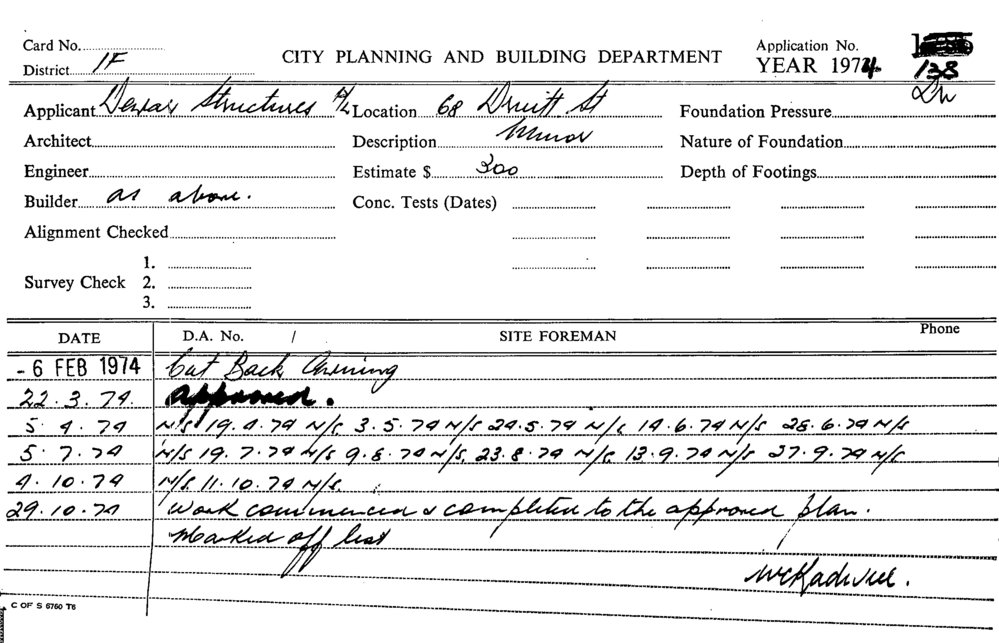 Card No. Application No.
District 1F CITY PLANNING AND BUILDING DEPARTMENT YEAR 1974 138
Applicant Dewar Structures P/L Location 68 Druitt St Foundation Pressure
Architect Description Minor Nature of Foundation
Engineer Estimate $ 300 Depth of Footings
Builder as above. Conc. Tests (Dates)
Alignment Checked
1.
Survey Check 2.
3.
DATE D.A. No. / SITE FOREMAN Phone
- 6 FEB 1974 Cut Back Awning
22.3.74. approved.
5.4.74 N/S 19.4.74 N/S 3.5.74 N/S 24.5.74 N/S 14.6.74 N/S 28.6.74 N/S
5.7.74 N/S 19.7.74 N/S 9.8.74 N/S. 23.8.74 N/S 13.9.74 N/S 27.9.74 N/S
4.10.74 N/S. 11.10.74 N/S.
29.10.74 Work commenced & completed to the approved plan.
Marked off list
C OF S 6760 T6